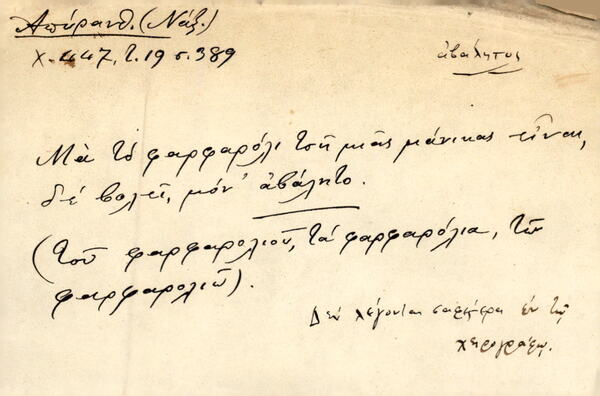 Ἀπύρανθ. (Νάξ.)
χ. 447, τ. 19 σ. 389
ἀβάλητος
Μὰ τὸ φαρφαρόλι τσῆ μιᾶς μάνικας εἶναι,
δὲ βολεῖ, μόν' ἀβάλητο.
(τοῦ φαρφαρολιοῦ, τὰ φαρφαρόλια, τῶν
φαρφαρολιῶ).
Δὲν λέγονται σαφέστερα ἐν τῷ
χειρογράφῳ.